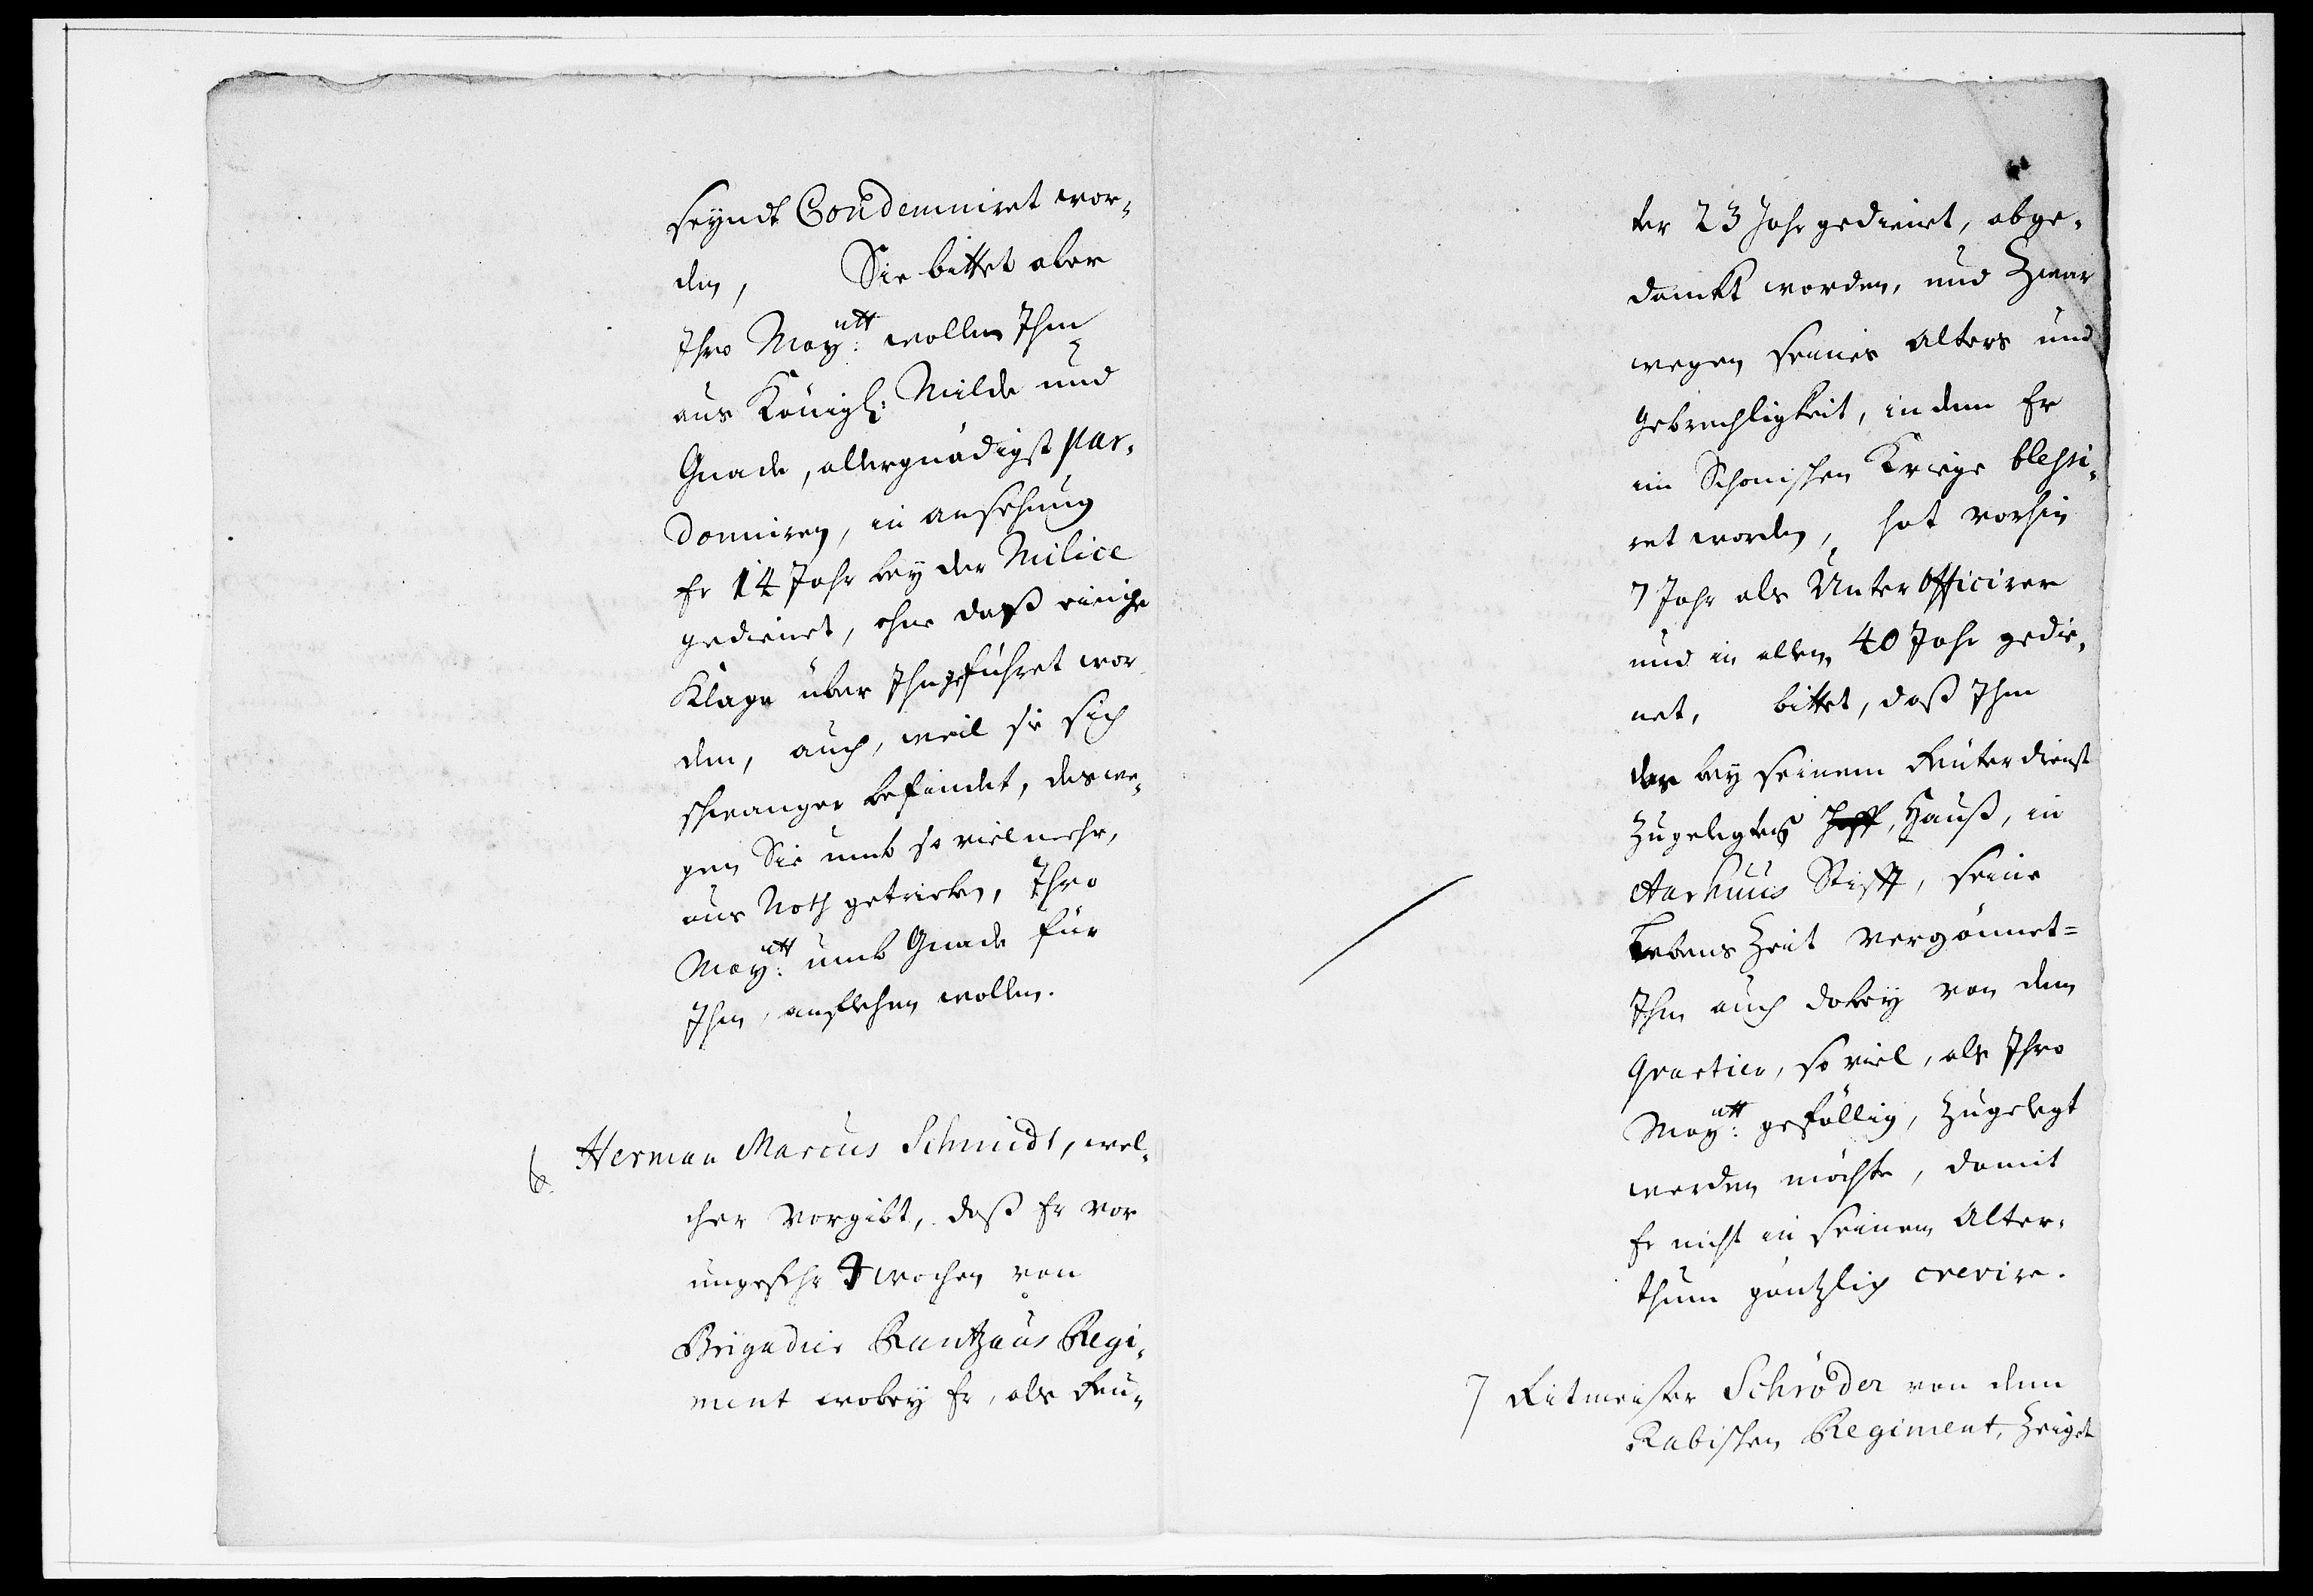 seyndt Condemniret wor-
den, Sie bittet aber
Ihro May:tt wollen Ihm
aus Königl: Milde und
Gnade, allergnädigst par-
donniren, in ansehung
Er 14 Jahr bey der Milice
gedienet, ohne daß einige
Klage über Ihn geführet wor
den, auch, weil sie sich
schwanger befindet, deswe-
gen Sie umb so viel mehr,
aus Noth getrieben, Ihro
May:tt umb Gnade für
Ihm, anflehen wollen.
6. Herman Marcus Schmidt, wel-
cher vorgibt, daß Er vor
ungefehr wochen von
Brigadier Rantzaus Regi-
ment wobey Er, als Reu-
ter 23 Jahr gedienet, abge-
danckt worden, und Zwar
wegen seines alters und
Gebrechligkeit, in dem Er
im Schonischen Kriege blessi-
ret worden, hat vorhin
7 Jahr als Unter Officirer
und in allem 40 Jahr gedie-
net, bittet, daß Ihm
das bey seinem Reuterdienst
Zugelegtes Hoff, Hauß, in
Aarhuus Stifft, seine
Lebens Zeit vergönnet=
Ihm auch dabey von dem
Qvartier, so viel, als Ihro
May:tt gefällig, Zugelegt
werden möchte, damit
Er nicht in seinem Alter-
thum gäntzlich crevire.
7 Ritmeister Schröder von dem
Rabischen Regiment, Zeiget